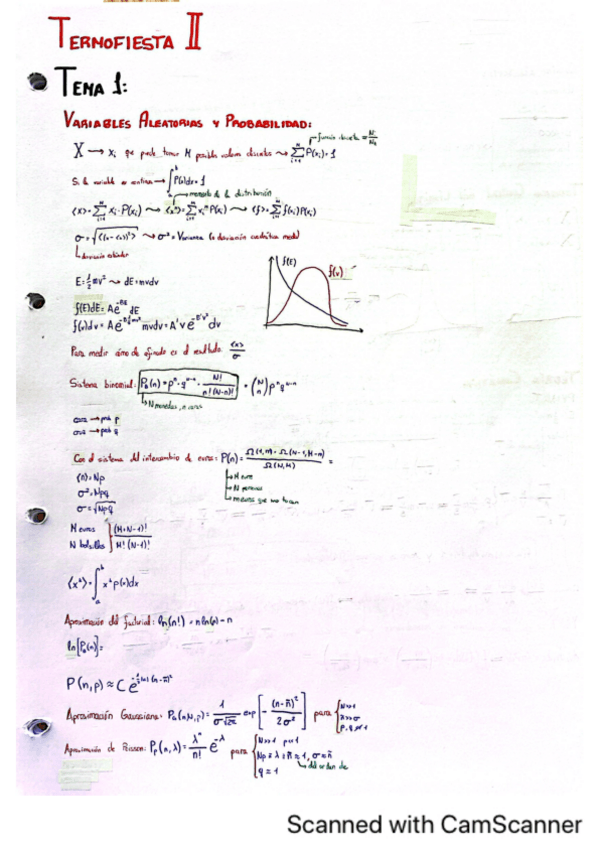 TERMOFIESTA II
TEMA 1:
VARIABLES ALEATORIAS Y PROBABILIDAD:
X → xi que puede tomar M posibles valores discretos ⇝ ∑ P(xi) = 1
Si la variable es continua ⇝ ∫ P(x)dx = 1
momento de la distribución
<x> = ∑ xi · P(xi) ⇝ <xⁿ> = ∑ xiⁿ P(xi) ⇝ <f> = ∑ f(xi) P(xi)
σ = √<(x - <x>)²> ⇝ σ² = Varianza (o desviación cuadrática media)
desviación estándar
f(E)
f(v)
E = ½ mv² ⇝ dE = mvdv
f(E)dE = A e^-BE dE
Para medir cómo de afinado es el resultado <x>/σ
Sistema binomial: Pn(n) = pⁿ · q^(N-n) · N!/(n!(N-n)!) = (N n) pⁿ q^(N-n)
N monedas, n caras
cara → prob p
cruz → prob q
Con el sistema del intercambio de euros: P(n) = Ω(1,n) · Ω(N-1, M-n) / Ω(N,M) =
<n> = Np
σ² = Npq
σ = √Npq
M euros
N personas
M euros
N bolsillos
(M+N-1)! / M! (N-1)!
<x²> = ∫ x² p(x)dx
Aproximación del factorial: ln(n!) = n ln(n) - n
ln[Pn(n)] =
Aproximación Gaussiana: Pn(n,N,p) = 1/(σ√2π) exp[-(n-n̄)²/2σ²] para
N>>1
Aproximación de Poisson: Pp(n,λ) = λⁿ/n! e^-λ para
N>>1 p<<1
q ≈ 1
del orden de
Scanned with CamScanner